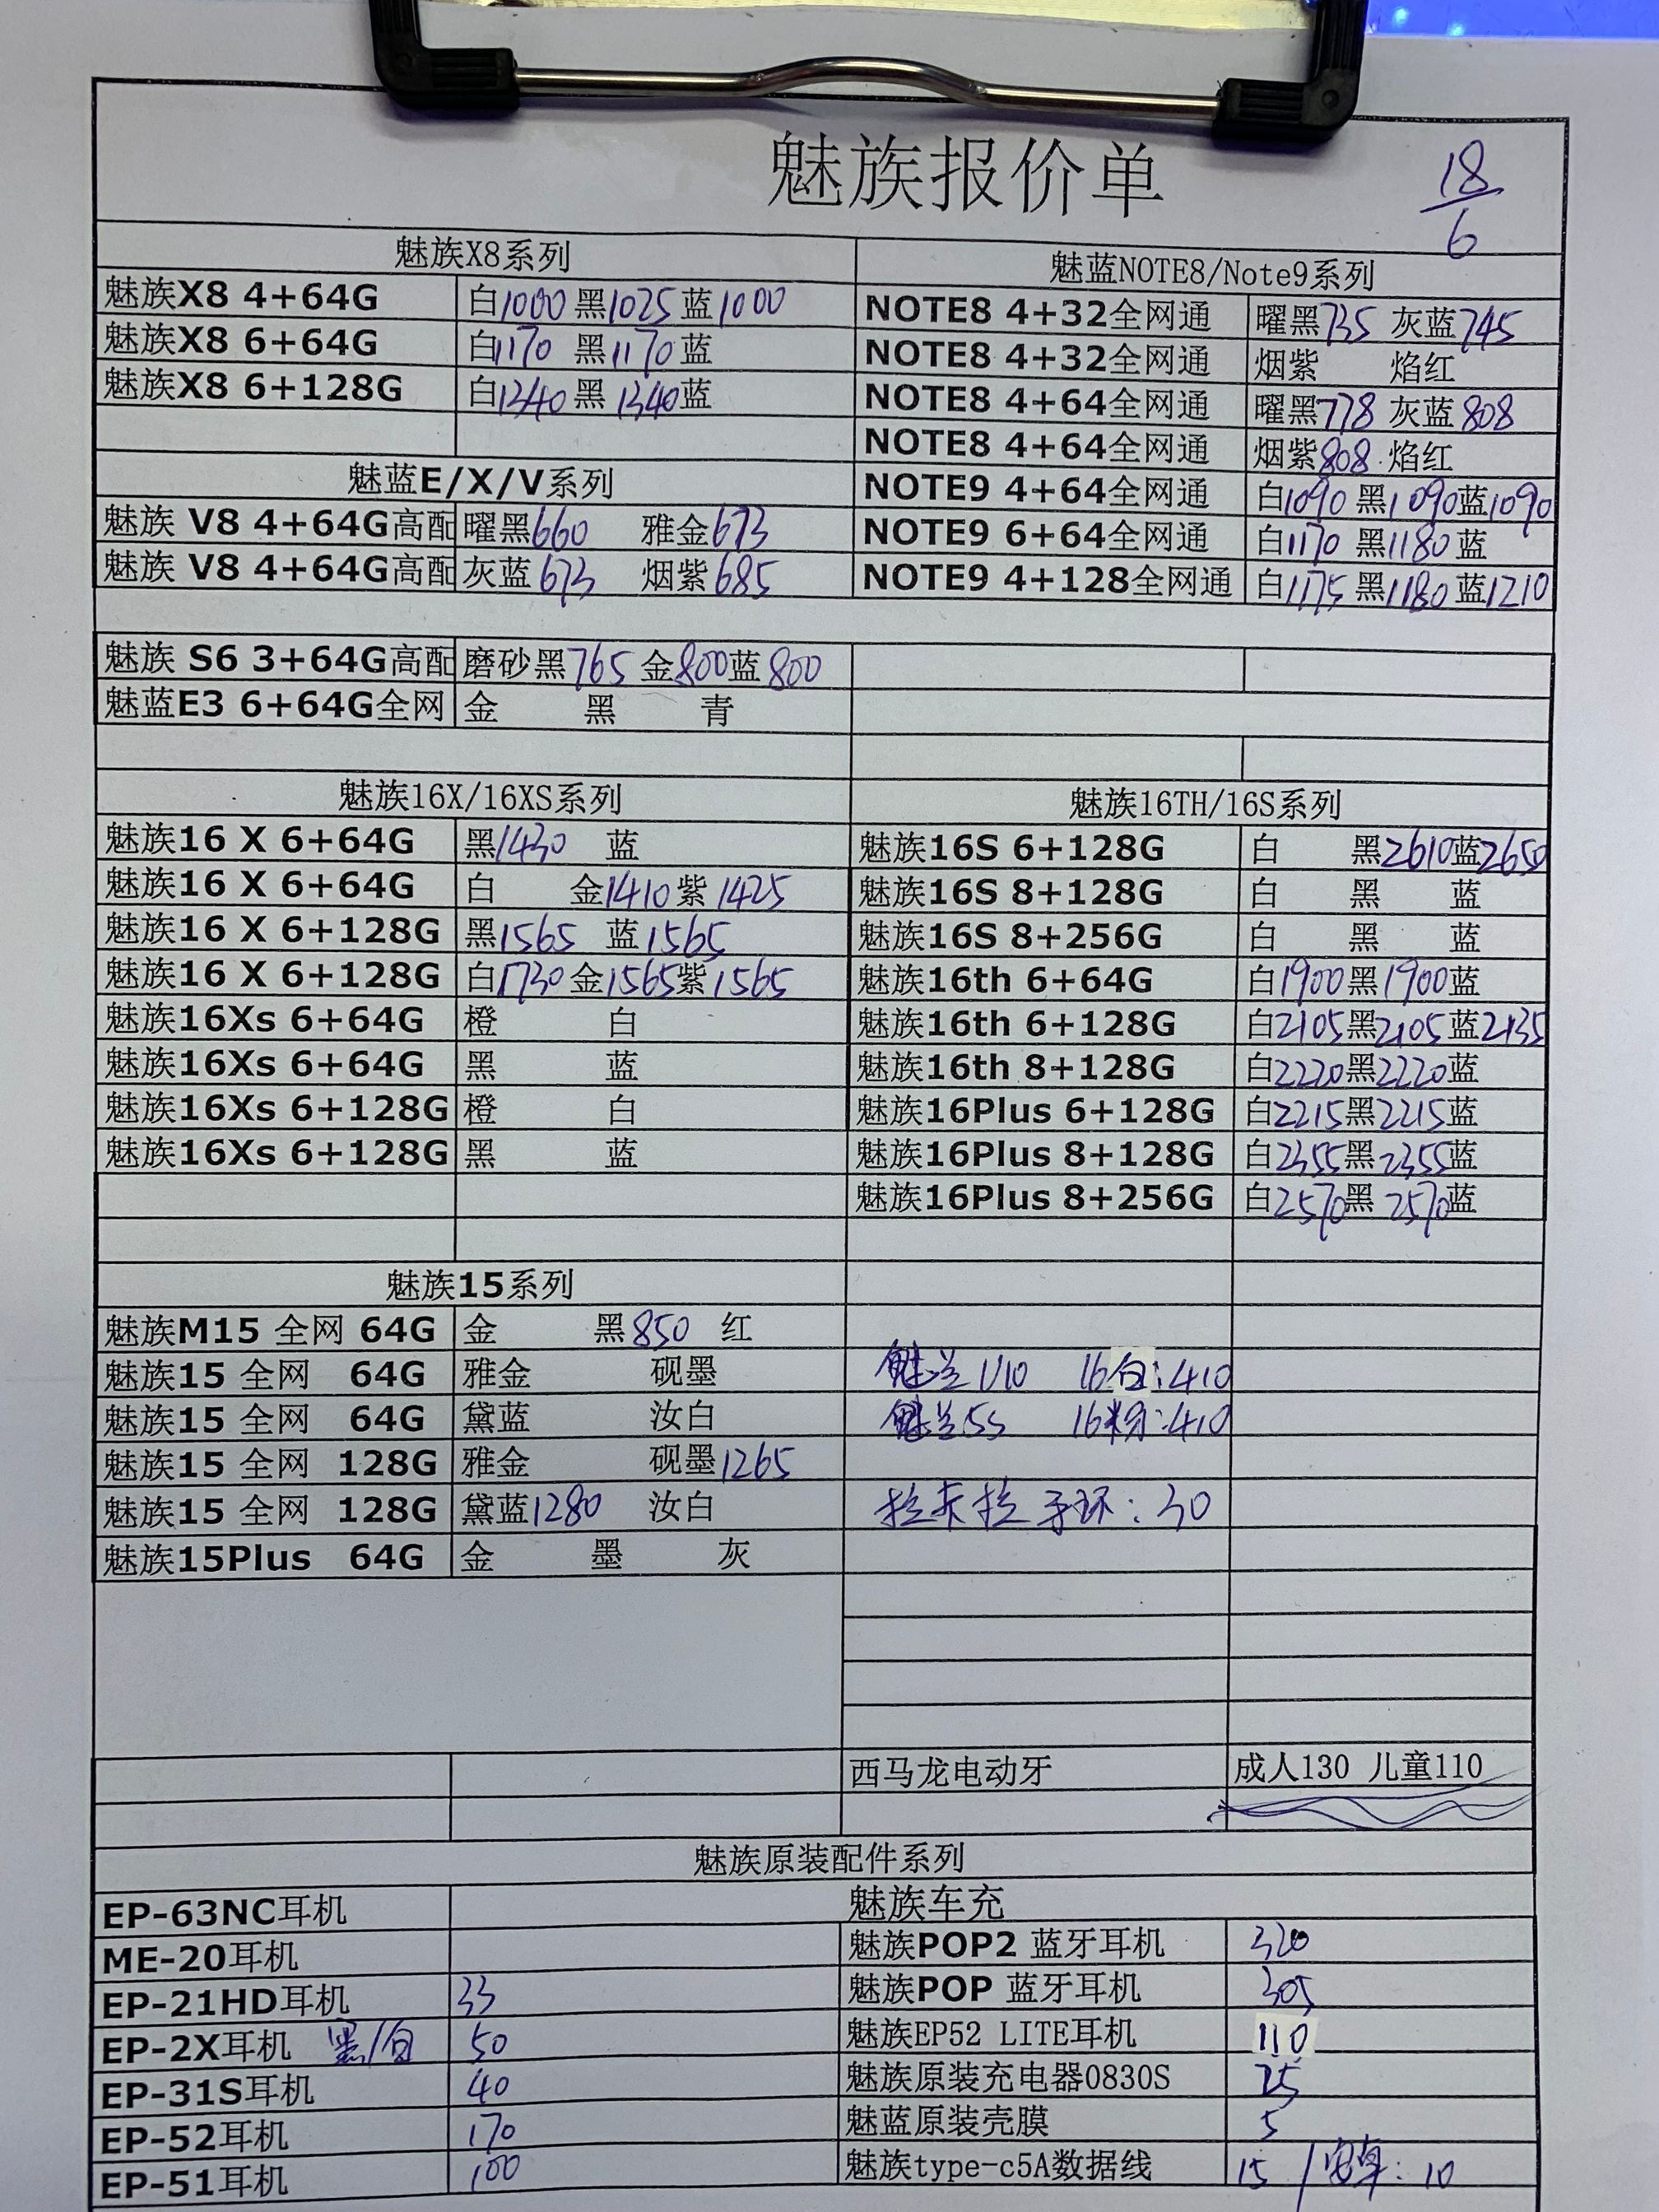 魅族报价单
18/6
魅族X8系列
魅族X8 4+64G 白1000 黑1025 蓝1000
魅族X8 6+64G 白1170 黑1170 蓝
魅族X8 6+128G 白1340 黑1340 蓝
魅蓝E/X/V系列
魅族 V8 4+64G高配 曜黑660 雅金673
魅族 V8 4+64G高配 灰蓝673 烟紫685
魅族 S6 3+64G高配 磨砂黑765 金800 蓝800
魅蓝E3 6+64G全网 金 黑 青
魅蓝NOTE8/Note9系列
NOTE8 4+32全网通 曜黑735 灰蓝745
NOTE8 4+32全网通 烟紫 焰红
NOTE8 4+64全网通 曜黑778 灰蓝808
NOTE8 4+64全网通 烟紫808 焰红
NOTE9 4+64全网通 白1090 黑1090 蓝1090
NOTE9 6+64全网通 白1170 黑1180 蓝
NOTE9 4+128全网通 白1175 黑1180 蓝1210
魅族16X/16XS系列
魅族16 X 6+64G 黑1430 蓝
魅族16 X 6+64G 白 金1410 紫1425
魅族16 X 6+128G 黑1565 蓝1565
魅族16 X 6+128G 白1730 金1565 紫1565
魅族16Xs 6+64G 橙 白
魅族16Xs 6+64G 黑 蓝
魅族16Xs 6+128G 橙 白
魅族16Xs 6+128G 黑 蓝
魅族16TH/16S系列
魅族16S 6+128G 白 黑2610 蓝2650
魅族16S 8+128G 白 黑 蓝
魅族16S 8+256G 白 黑 蓝
魅族16th 6+64G 白1900 黑1900 蓝
魅族16th 6+128G 白2105 黑2105 蓝2135
魅族16th 8+128G 白2220 黑2220 蓝
魅族16Plus 6+128G 白2215 黑2215 蓝
魅族16Plus 8+128G 白2355 黑2355 蓝
魅族16Plus 8+256G 白2570 黑2570 蓝
魅族15系列
魅族M15 全网 64G 金 黑850 红
魅族15 全网 64G 雅金 砚墨
魅族15 全网 64G 黛蓝 汝白
魅族15 全网 128G 雅金 砚墨1265
魅族15 全网 128G 黛蓝1280 汝白
魅族15Plus 64G 金 墨 灰
16白:410
魅兰5s 16粉:410
拉卡拉手环:30
西马龙电动牙 成人130 儿童110
魅族原装配件系列
EP-63NC耳机
ME-20耳机
EP-21HD耳机 33
EP-2X耳机 黑/白 50
EP-31S耳机 40
EP-52耳机 170
EP-51耳机 100
魅族车充
魅族POP2 蓝牙耳机 320
魅族POP 蓝牙耳机 305
魅族EP52 LITE耳机 110
魅族原装充电器0830S 25
魅蓝原装壳膜 5
魅族type-c5A数据线 15 /安卓:10